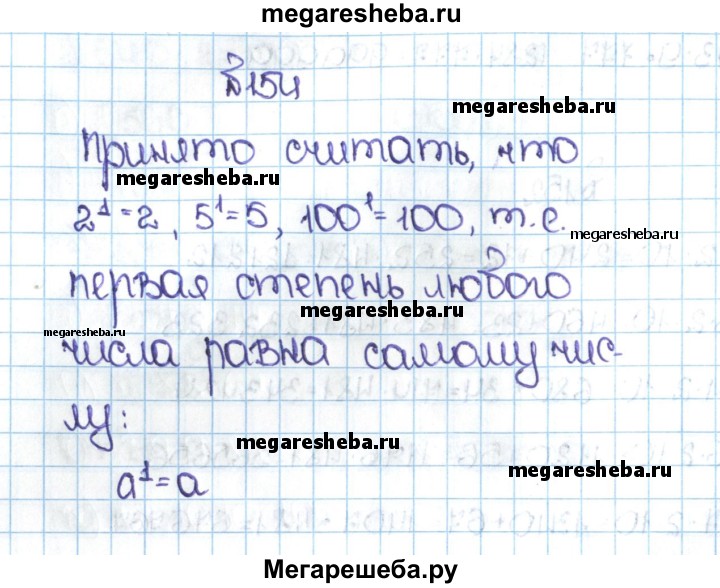 megaresheba.ru
№154
megaresheba.ru
Принято считать, что
megaresheba.ru
2¹=2, 5¹=5, 100¹=100, т.е.
megaresheba.ru
первая степень любого
megaresheba.ru
megaresheba.ru
числа равна самому чис-
лу:
megaresheba.ru
megaresheba.ru
a¹=a
Мегарешеба.ру